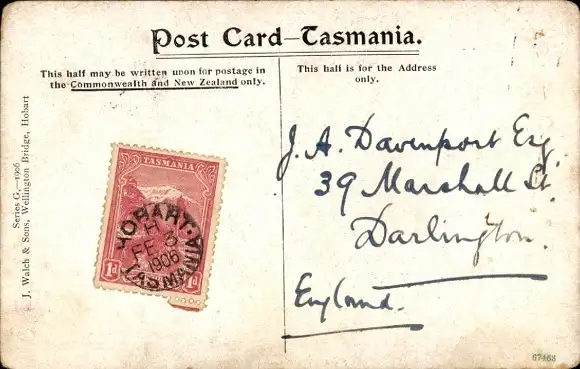 Post Card—Tasmania.
This half may be written upon for postage in
the Commonwealth and New Zealand only.
This half is for the Address
only.
Series G,—1906
J. Walch & Sons, Wellington Bridge, Hobart
TASMANIA
1d 1d
HOBART·
H
FE 5
1906
TASMANIA
J. A. Davenport Esq
39 Marshall St
Darlington.
England.
67468